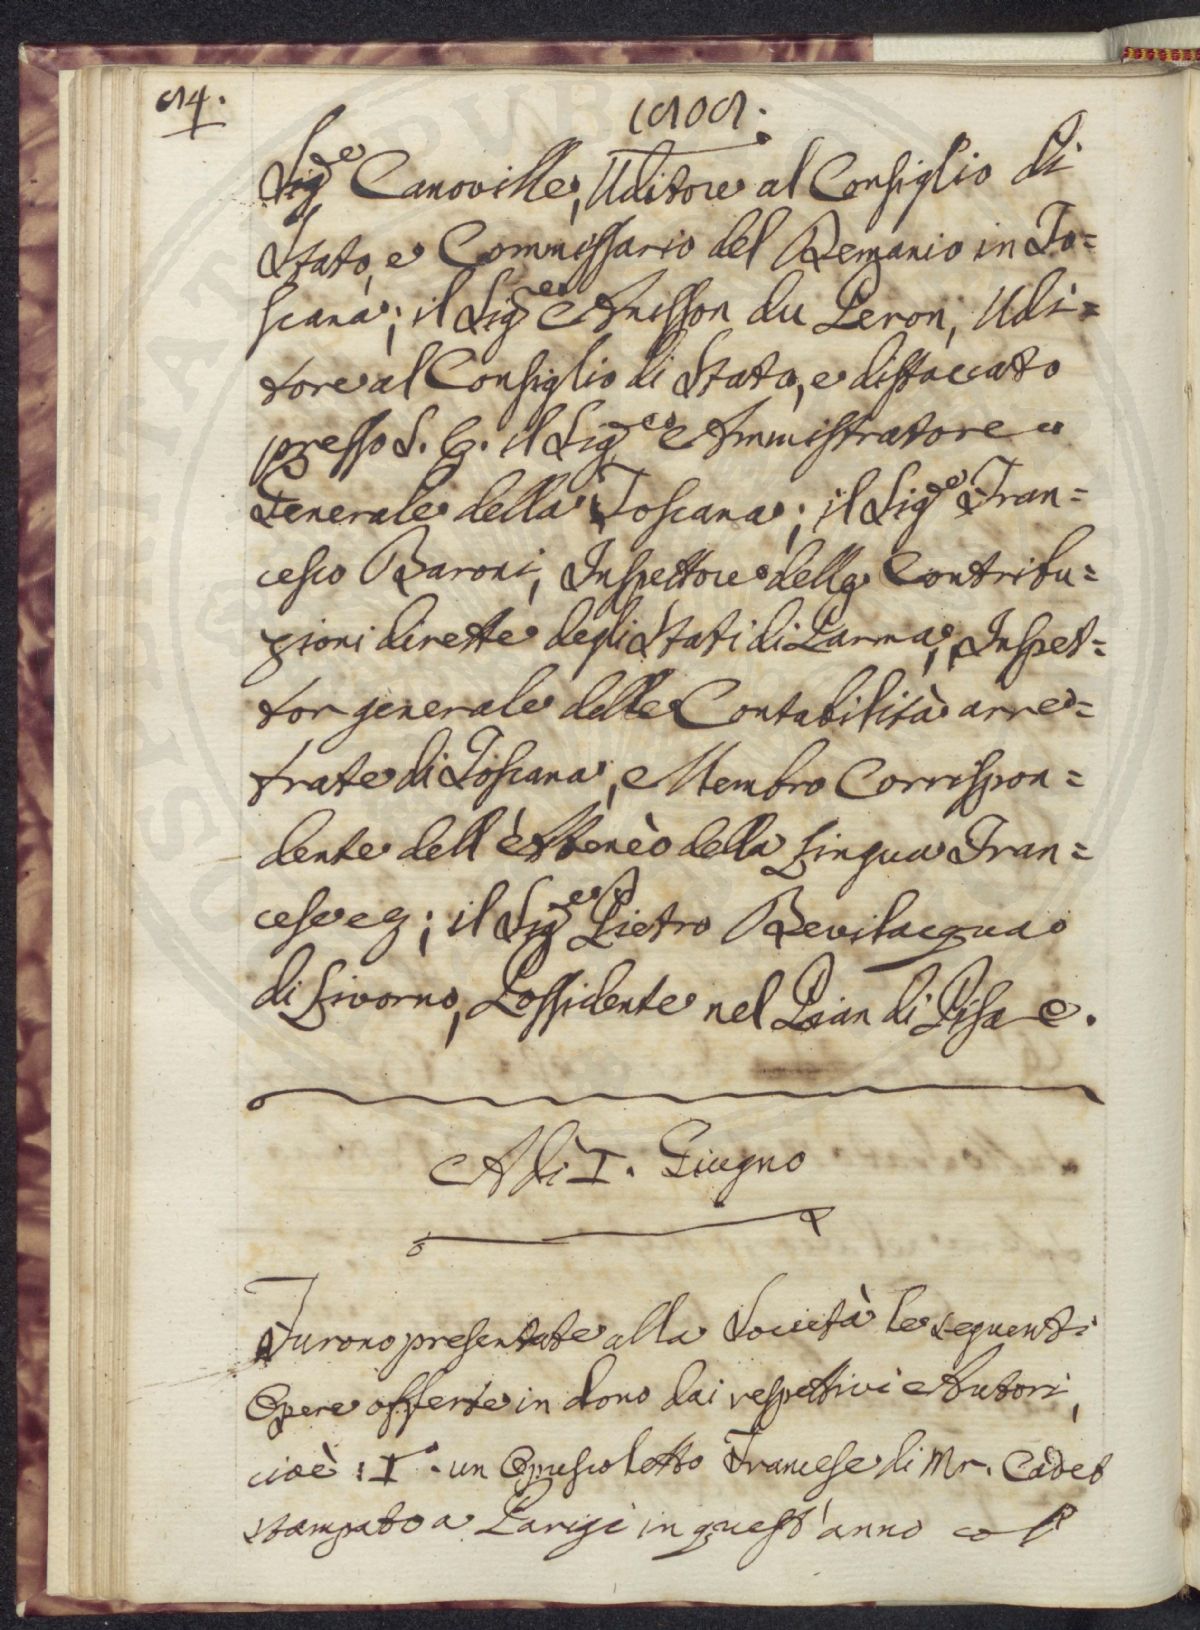 94.
1809.
Sig.re Canoville, Uditore al Consiglio di
Stato, e Commissario del Demanio in To=
scana; il Sig.re Anisson du Peron, Udi=
tore al Consiglio di Stato, e distaccato
presso S. E. il Sig.re Amministratore
Generale della Toscana; il Sig.re Fran=
cesco Baroni, Inspettore delle Contribu=
zioni dirette degli Stati di Parma, Inspet=
tor generale delle Contabilità arre=
trate di Toscana, e Membro Corrispon=
dente dell'Atenèo della Lingua Fran=
cese &; il Sig.re Pietro Bevilacqua
di Livorno, Possidente nel Pian di Pisa &.
A dì I. Giugno
Furono presentate alla Società le seguenti
Opere offerte in dono dai respettivi Autori,
cioè: I.° un Opuscoletto Francese di Mr. Cadet
stampato a Parigi in quest'anno